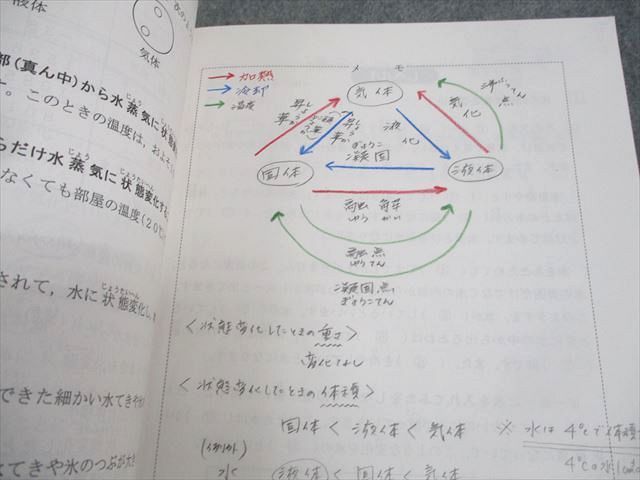 液体
気体
部(真ん中)から水蒸気に状態
す。このときの温度は,およそ
らだけ水蒸気に状態変化する
なくても部屋の温度(20℃
されて,水に状態変化し
できた細かい水てきや
てきや氷のつぶが大き
メモ
→加熱
→冷却
→温度
気体
沸とう点
気化
液化
昇華
昇華
ぎょうこ
凝固
固体
液体
融解
ゆうかい
融点
ゆうてん
凝固点
ぎょうこてん
<状態変化したときの重さ>
変化なし
<状態変化したときの体積>
固体<液体<気体 ※水は4℃で体積
(例外)
水 液体<固体<気体 4℃の水1cm³